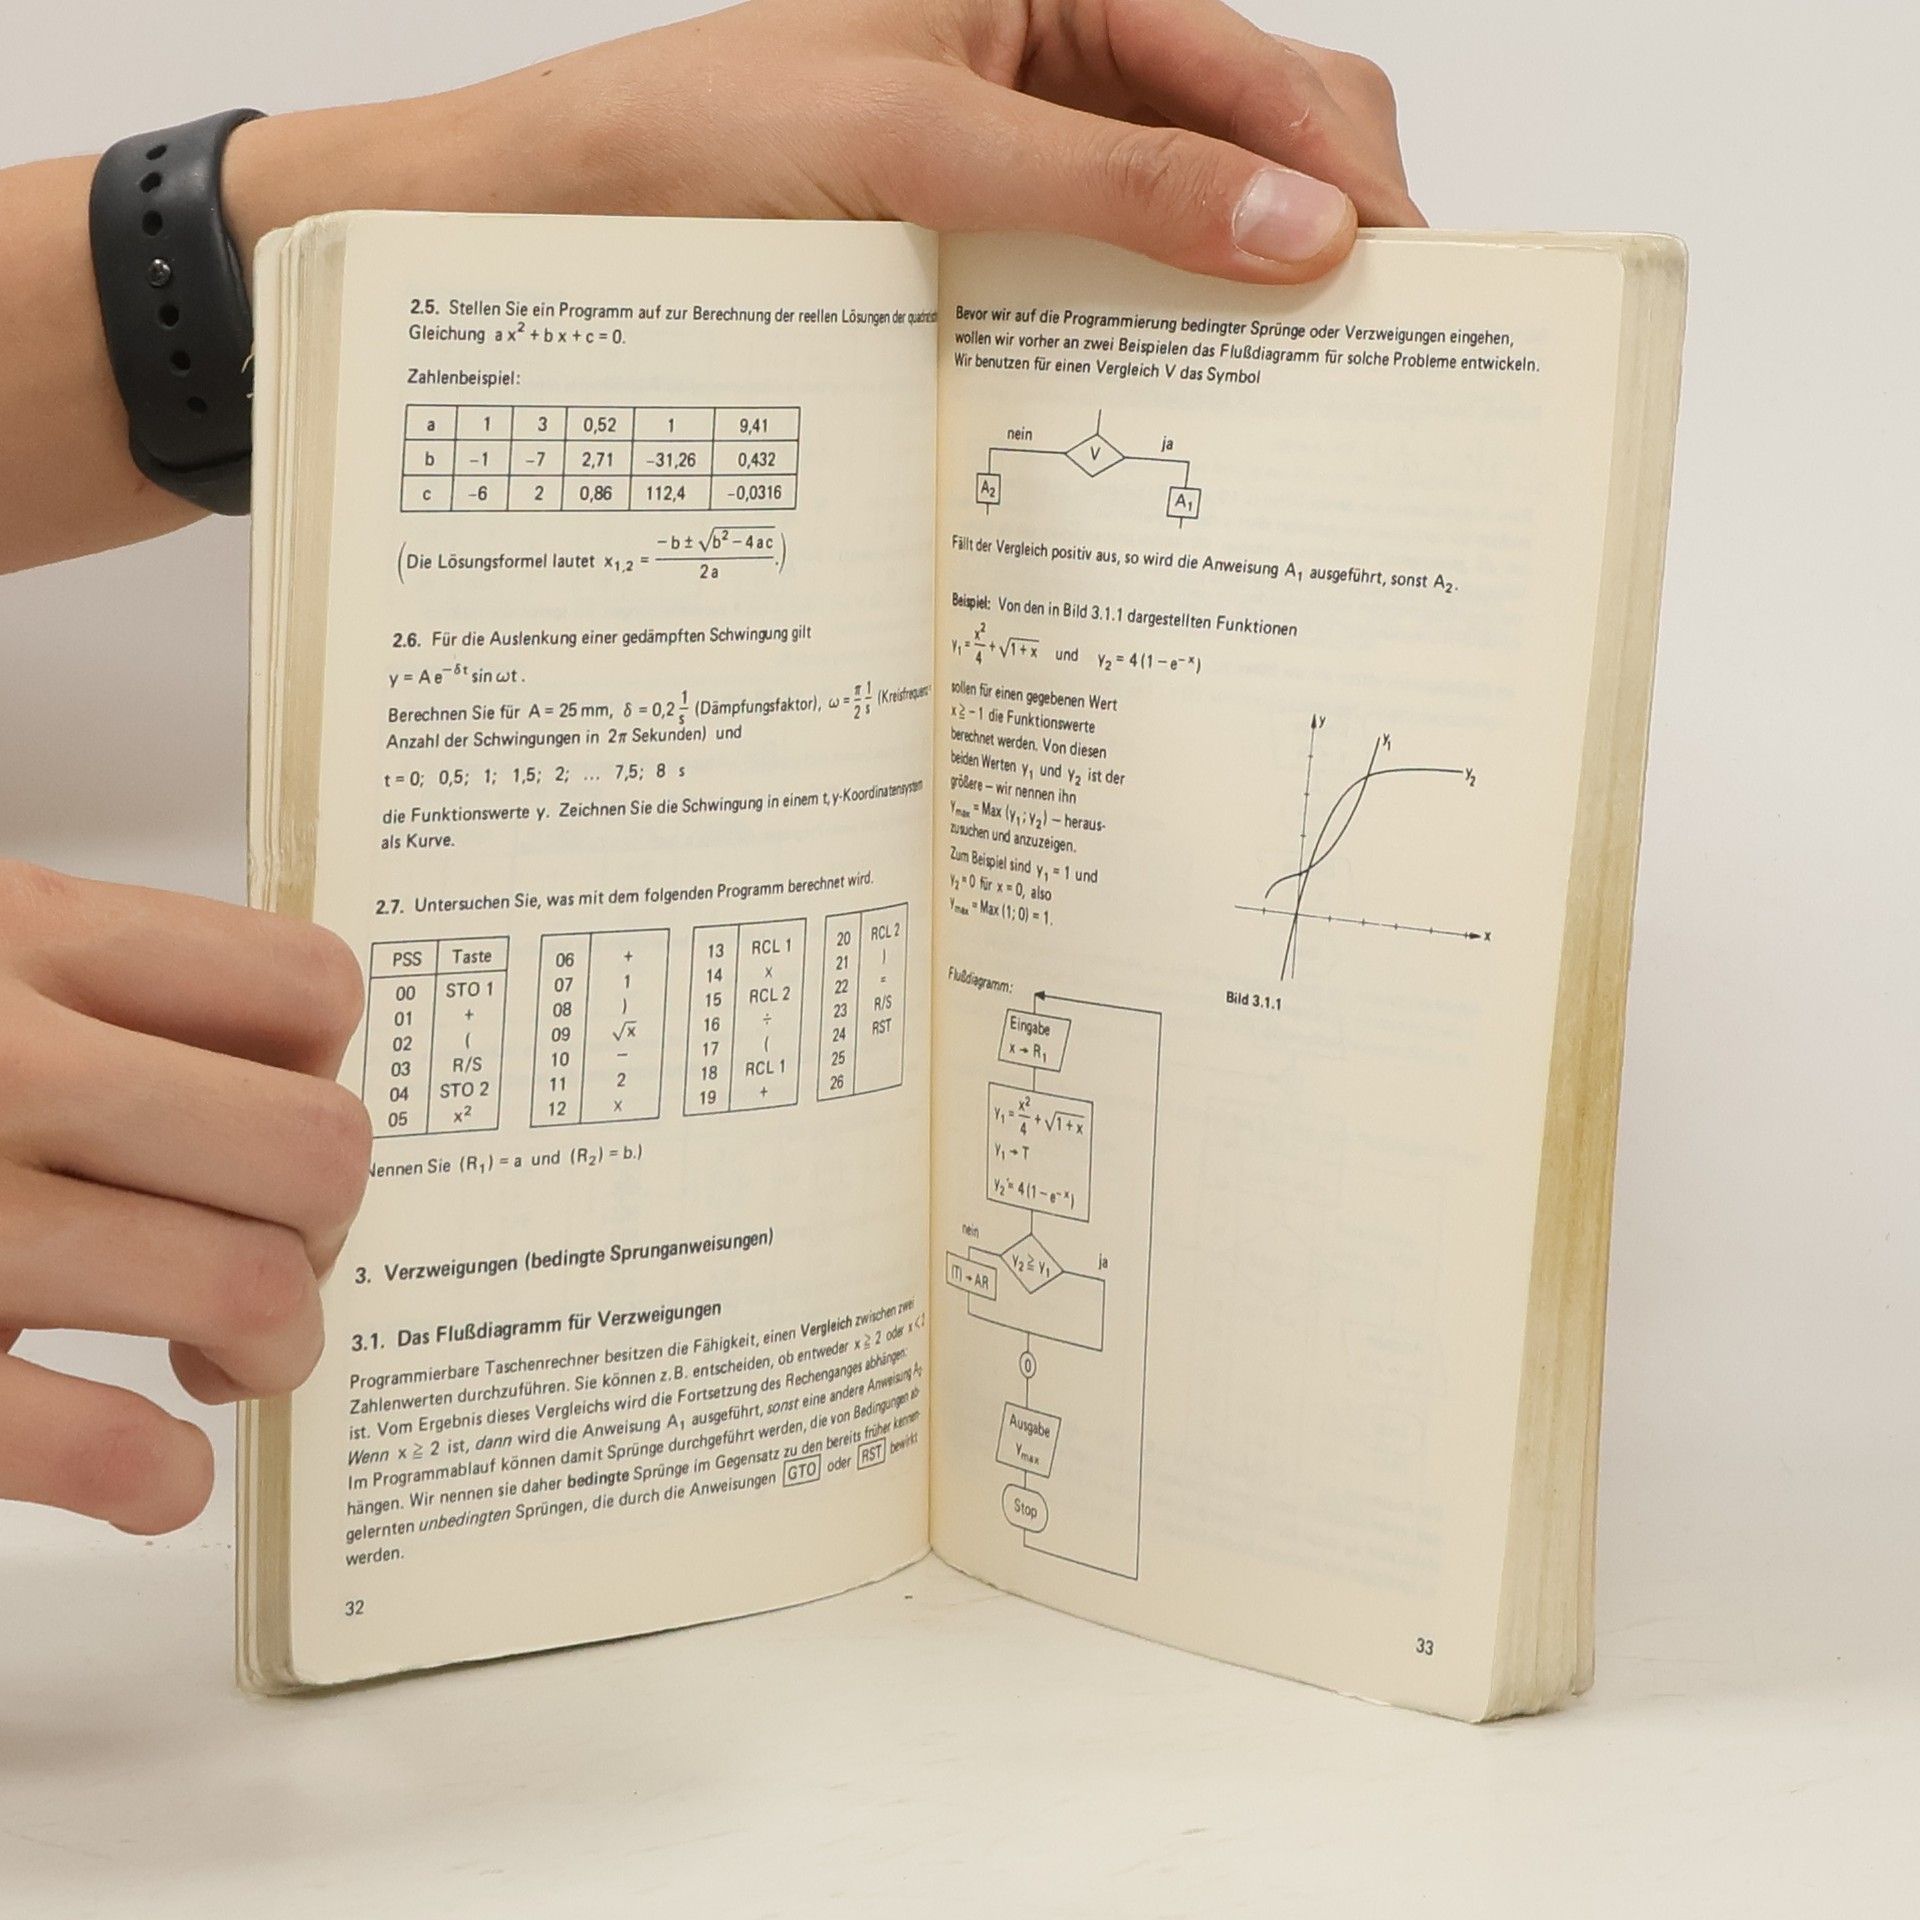 2.5. Stellen Sie ein Programm auf zur Berechnung der reellen Lösungen der
Gleichung a x² + b x + c = 0.
Zahlenbeispiel:
a 1 3 0,52 1 9,41
b −1 −7 2,71 −31,26 0,432
c −6 2 0,86 112,4 −0,0316
(Die Lösungsformel lautet x₁,₂ = (−b ± √(b² − 4ac)) / 2a .)
2.6. Für die Auslenkung einer gedämpften Schwingung gilt
y = A e^(−δt) sin ωt .
Berechnen Sie für A = 25 mm, δ = 0,2 1/s (Dämpfungsfaktor), ω = π/2 1/s (Kreisfrequenz =
Anzahl der Schwingungen in 2π Sekunden) und
t = 0; 0,5; 1; 1,5; 2; ... 7,5; 8 s
die Funktionswerte y. Zeichnen Sie die Schwingung in einem t, y-Koordinatensystem
als Kurve.
2.7. Untersuchen Sie, was mit dem folgenden Programm berechnet wird.
PSS Taste
00 STO 1
01 +
02 (
03 R/S
04 STO 2
05 x²
06 +
07 1
08 )
09 √x
10 −
11 2
12 x
13 RCL 1
14 x
15 RCL 2
16 ÷
17 (
18 RCL 1
19 +
20 RCL 2
21 )
22 =
23 R/S
24 RST
25
26
Nennen Sie (R₁) = a und (R₂) = b.)
3. Verzweigungen (bedingte Sprunganweisungen)
3.1. Das Flußdiagramm für Verzweigungen
Programmierbare Taschenrechner besitzen die Fähigkeit, einen Vergleich zwischen zwei
Zahlenwerten durchzuführen. Sie können z. B. entscheiden, ob entweder x ≧ 2 oder x < 2
ist. Vom Ergebnis dieses Vergleichs wird die Fortsetzung des Rechenganges abhängen:
Wenn x ≧ 2 ist, dann wird die Anweisung A₁ ausgeführt, sonst eine andere Anweisung A₂
Im Programmablauf können damit Sprünge durchgeführt werden, die von Bedingungen ab-
hängen. Wir nennen sie daher bedingte Sprünge im Gegensatz zu den bereits früher kennen-
gelernten unbedingten Sprüngen, die durch die Anweisungen GTO oder RST bewirkt
werden.
32
Bevor wir auf die Programmierung bedingter Sprünge oder Verzweigungen eingehen,
wollen wir vorher an zwei Beispielen das Flußdiagramm für solche Probleme entwickeln.
Wir benutzen für einen Vergleich V das Symbol
nein V ja
A₂ A₁
Fällt der Vergleich positiv aus, so wird die Anweisung A₁ ausgeführt, sonst A₂.
Beispiel: Von den in Bild 3.1.1 dargestellten Funktionen
y₁ = x²/4 + √(1 + x) und y₂ = 4 (1 − e^(−x))
sollen für einen gegebenen Wert
x ≧ −1 die Funktionswerte
berechnet werden. Von diesen
beiden Werten y₁ und y₂ ist der
größere – wir nennen ihn
y_max = Max (y₁; y₂) – heraus-
zusuchen und anzuzeigen.
Zum Beispiel sind y₁ = 1 und
y₂ = 0 für x = 0, also
y_max = Max (1; 0) = 1.
y
y₁
y₂
x
Bild 3.1.1
Flußdiagramm:
Eingabe
x → R₁
y₁ = x²/4 + √(1 + x)
y₁ → T
y₂ = 4 (1 − e^(−x))
nein
y₂ ≧ y₁
ja
(T) → AR
0
Ausgabe
y_max
Stop
33